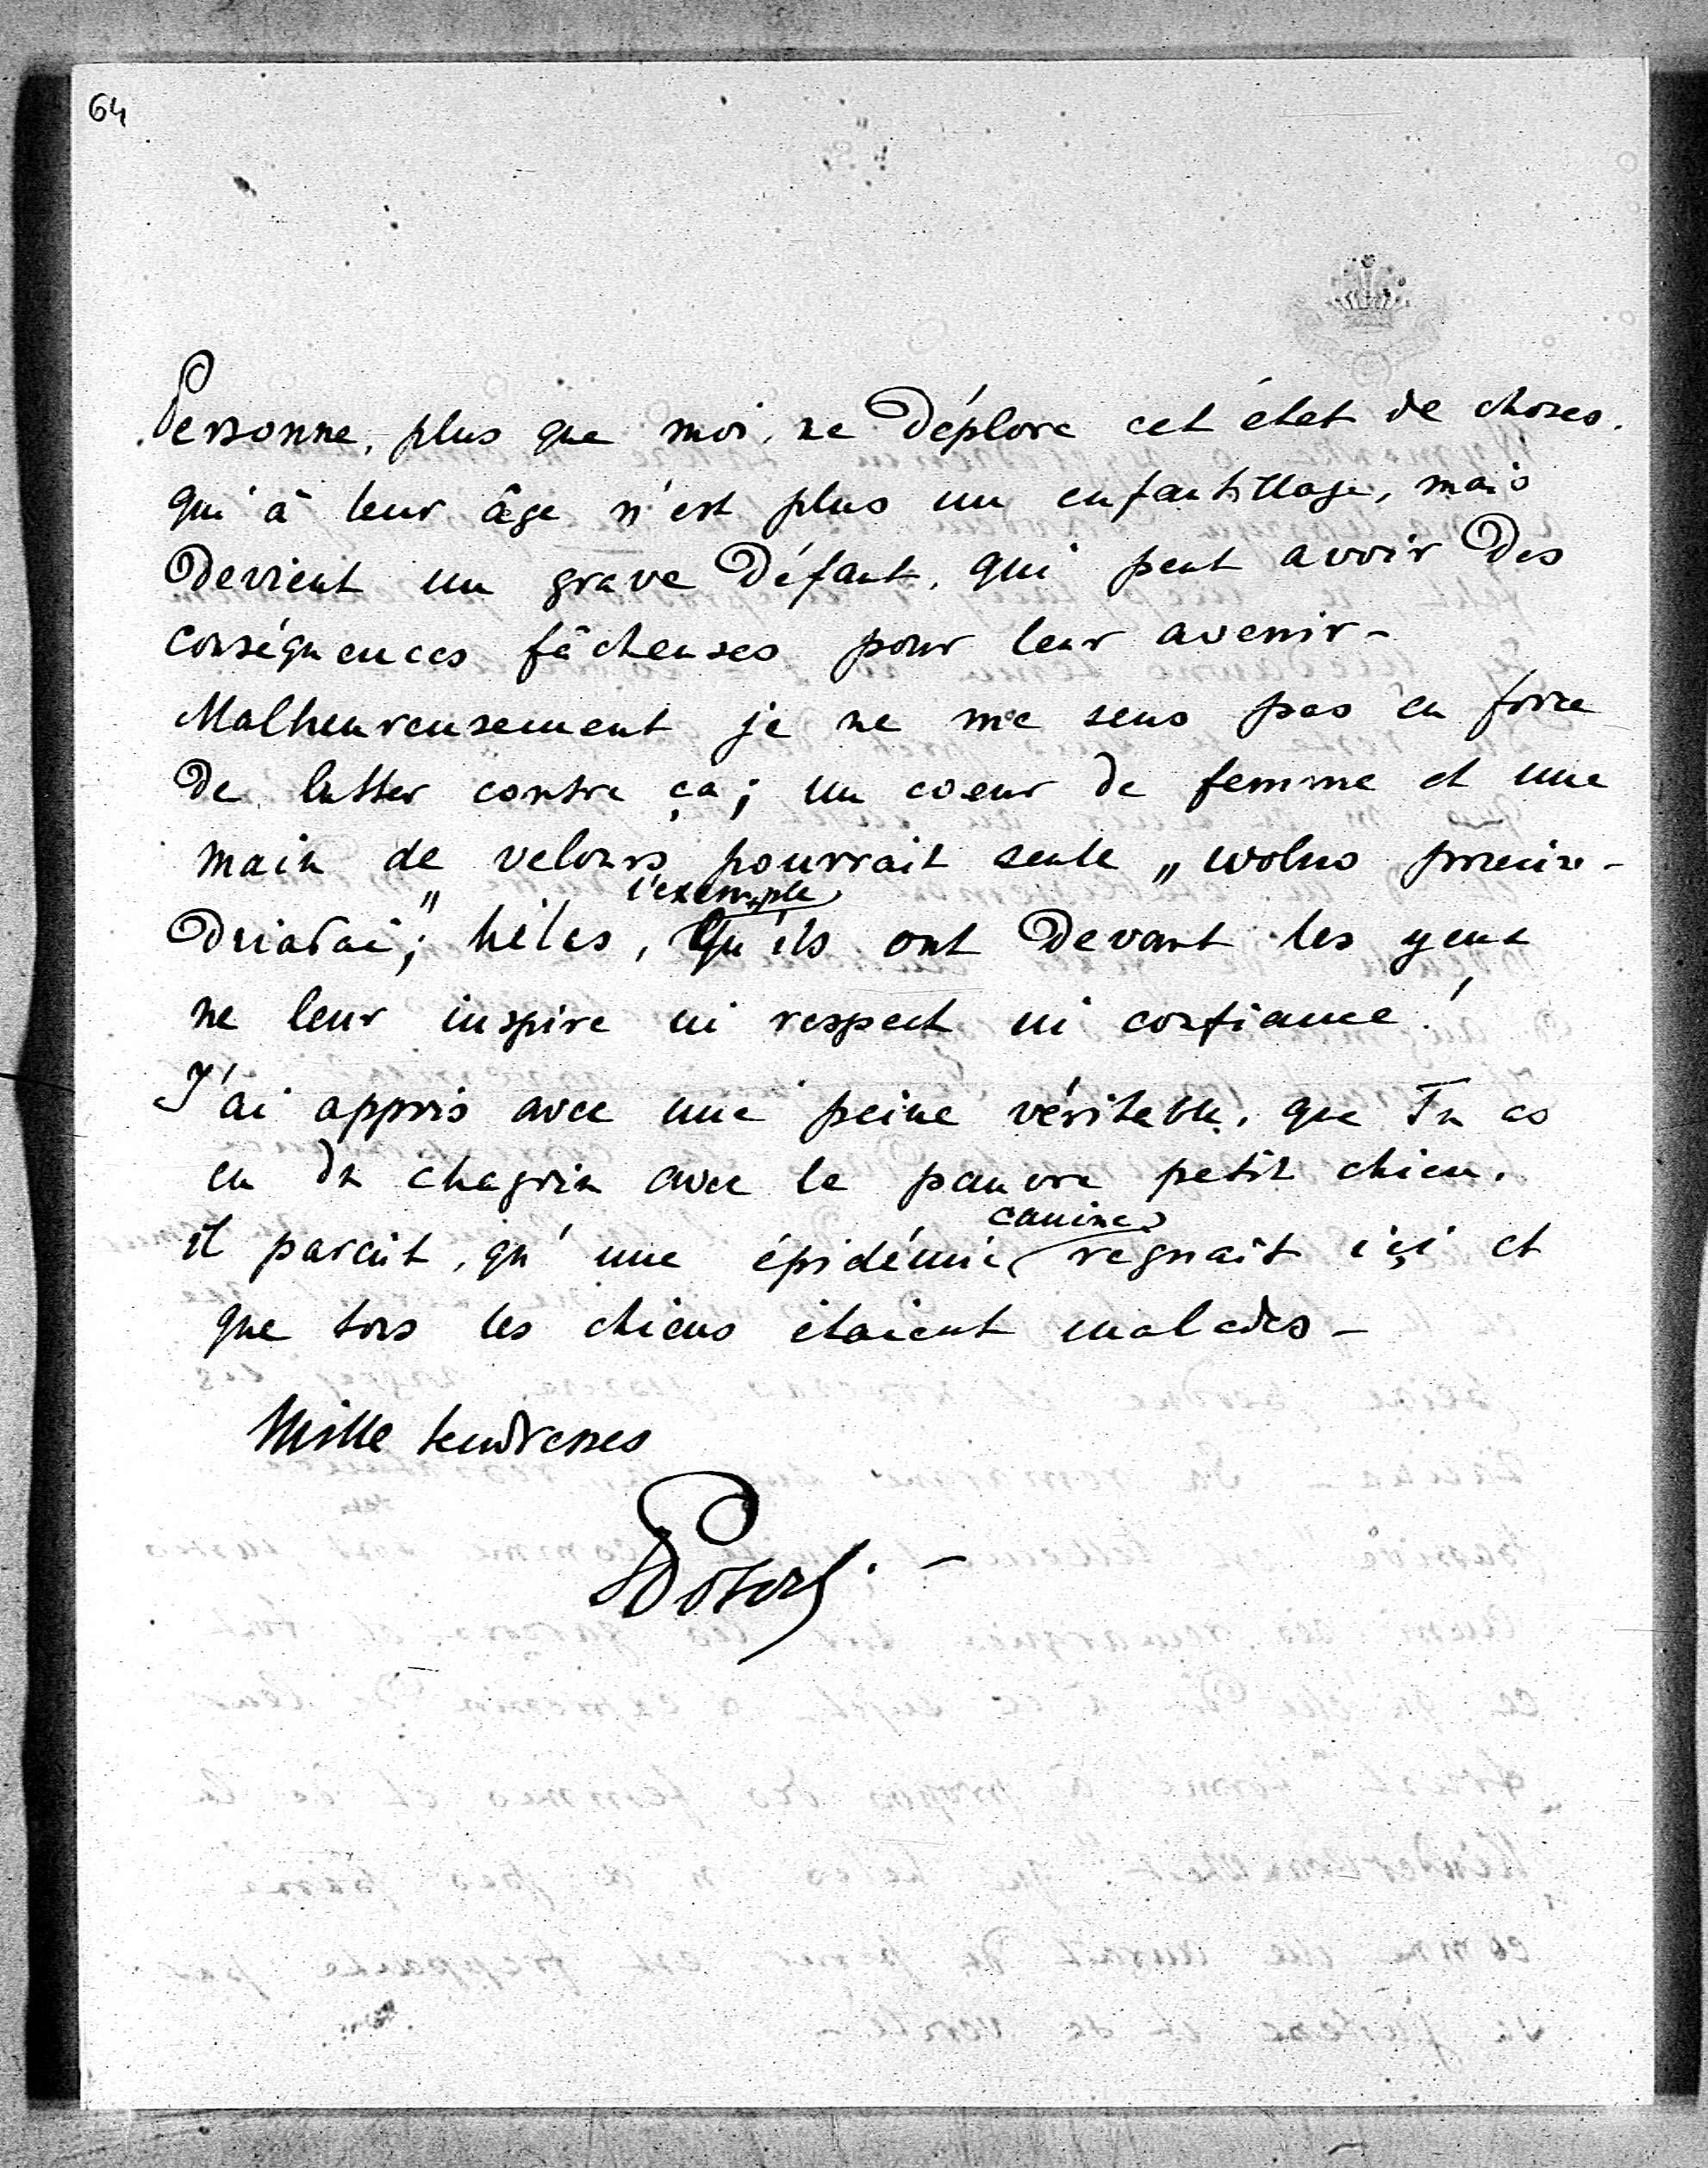 64
Personne, plus que moi, ne déplore cet état de choses.
qui à leur âge n'est plus un enfantillage, mais
devient un grave défaut, qui peut avoir des
conséquences fâcheuses pour leur avenir -
Malheureusement je ne me sens pas en force
de lutter contre ça; un coeur de femme et une
main de velours pourrait seule „wolno
l'exemple
hélas, qu'ils ont devant les yeux
ne leur inspire ni respect ni confiance!
J'ai appris avec une peine véritable, que Tu as
eu du chagrin avec le pauvre petit chien.
canine
il parait, qu'une épidémie regnait içi et
que tous les chiens étaient malades -
Mille tendresses